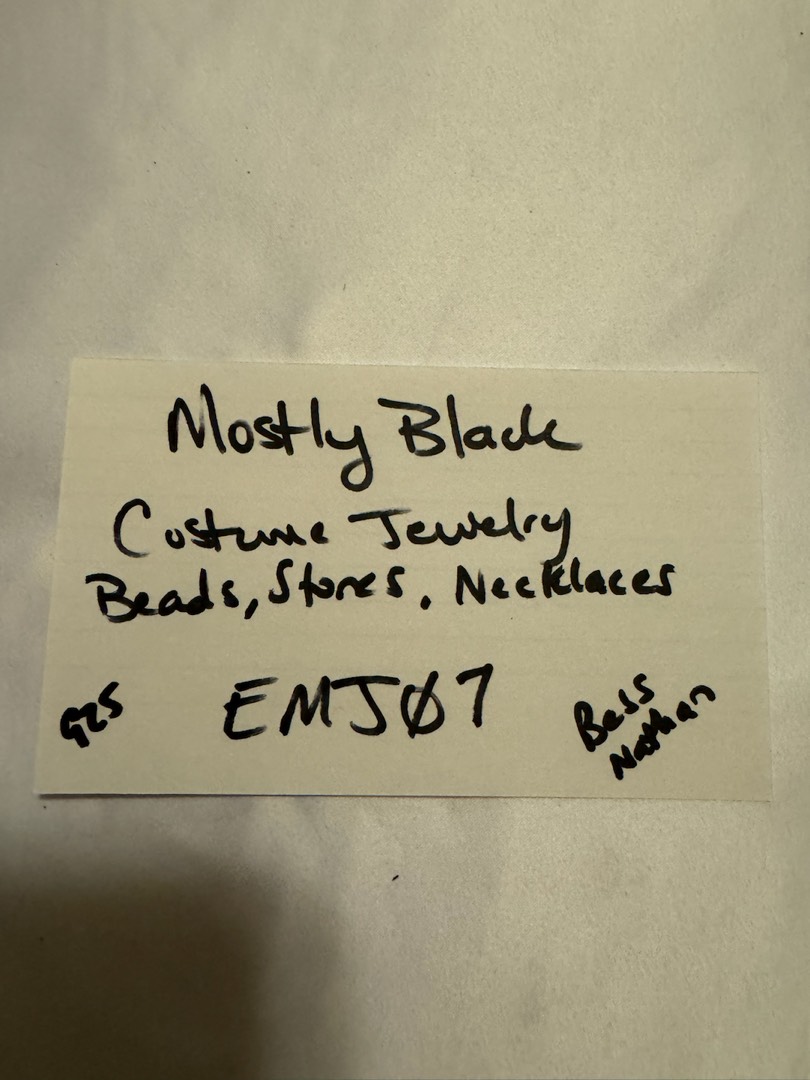 Mostly Black
Costume Jewelry
Beads, Stones, Necklaces
EMJØ7
Bess
Nathan